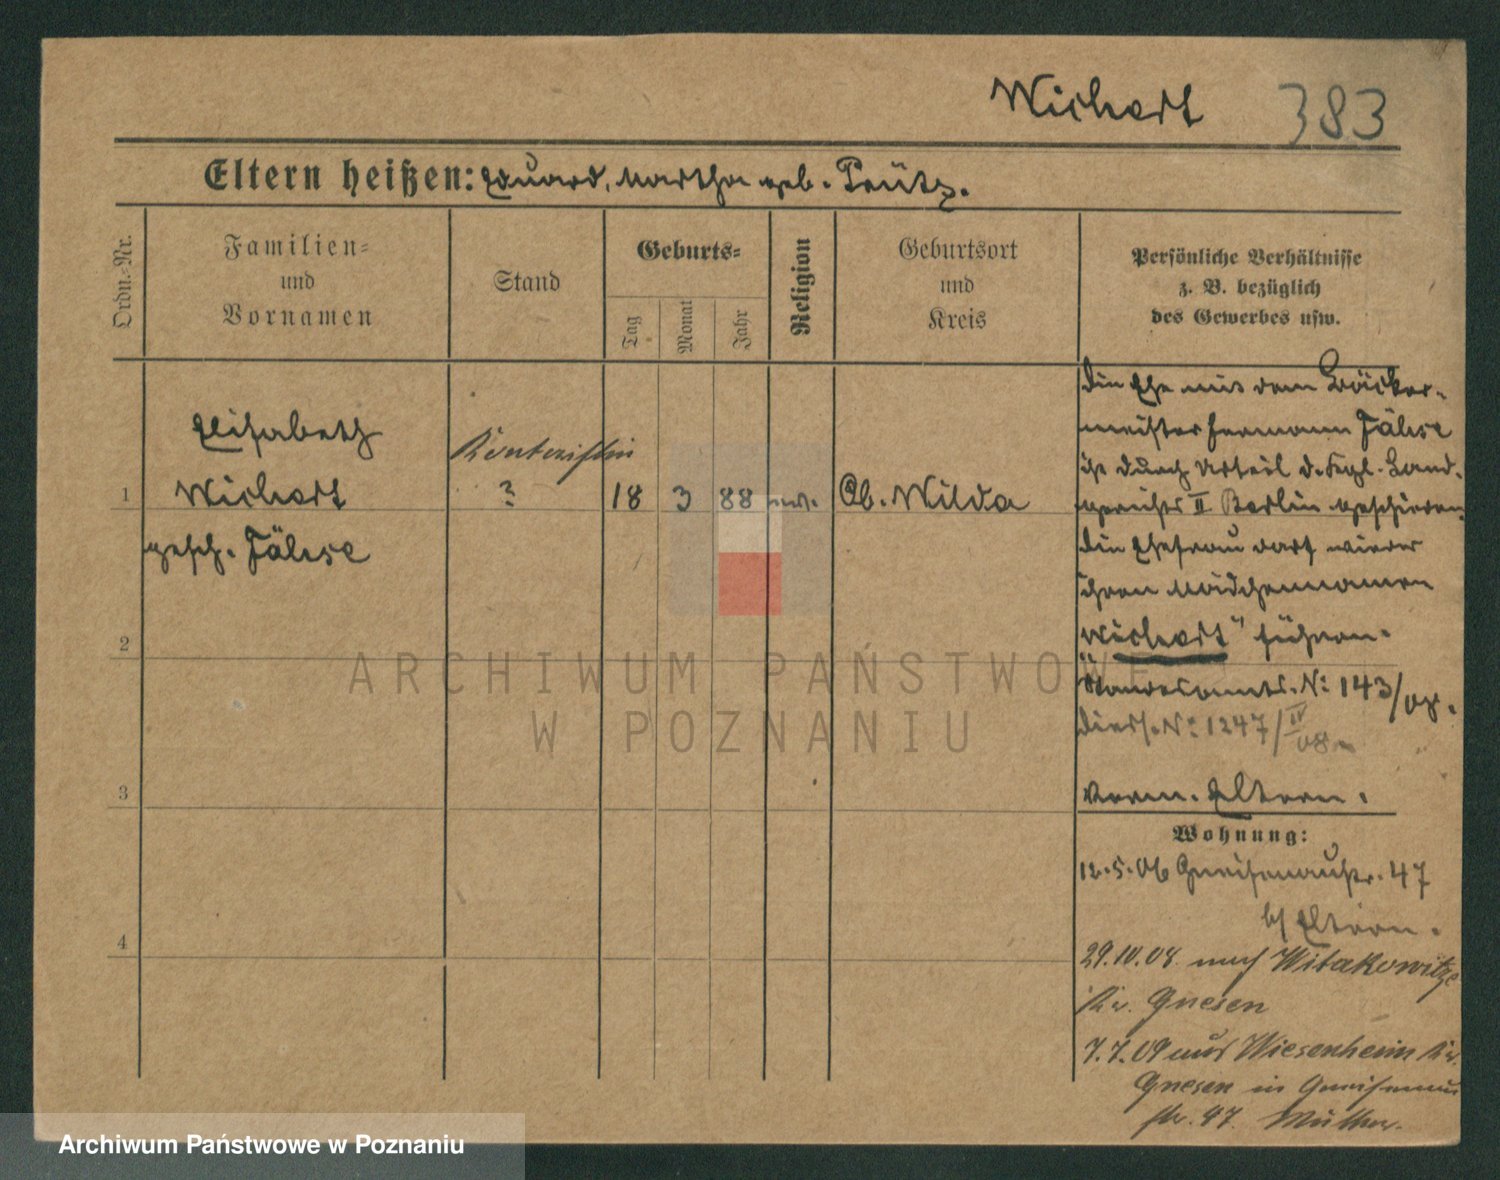 Wichert 383
Eltern heißen: Eduard, Martha geb. Prütz.
Ordn.-Nr.
Familien-
und
Vornamen
Stand
Geburts-
Tag
Monat
Jahr
Religion
Geburtsort
und
Kreis
Persönliche Verhältnisse
z. B. bezüglich
des Gewerbes usw.
1
Elisabeth
Wichert
gesch. Jähse
Kontoristin
?
18 3 88
Ob. Wilda
Die Ehe mit dem Bäcker-
meister Hermann Jähse
ist durch Urteil d. Kgl. Land-
gerichts II Berlin geschieden
die Ehefrau darf wieder
ihren Mädchennamen
Wichert" führen.
Standesamts. No: 143/08.
No: 1247/IV 08.
Eltern.
Wohnung:
12.5.06 Gneisenaustr. 47
b/ Eltern.
29.10.08 nach Witakowitze
Kr. Gnesen
7.7.09 aus Wiesenheim Kr.
Gnesen in Gneisenau
str. 47. Mutter.
2
3
4
ARCHIWUM PAŃSTWOWE
W POZNANIU
Archiwum Państwowe w Poznaniu